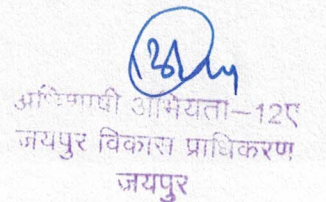 अधिशाषी अभियंता—12ए
जयपुर विकास प्राधिकरण
जयपुर